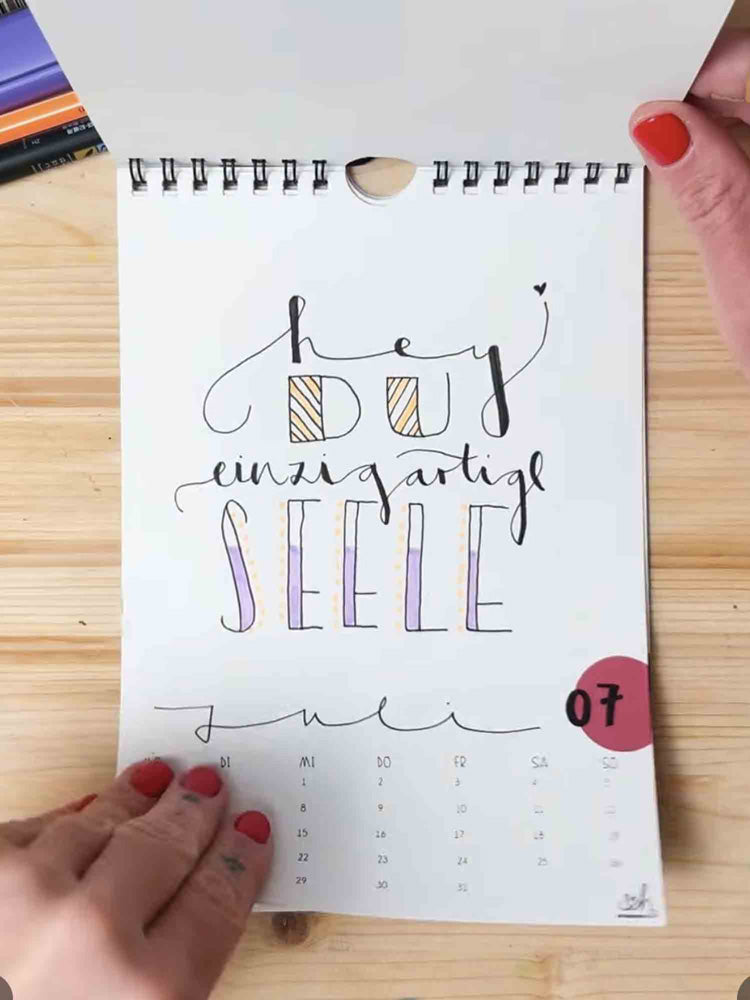 hey
DU
einzigartige
SEELE
07
Juli
DI MI DO FR SA SO
1 2 3 4
8 9 10 11
15 16 17 18
22 23 24 25
29 30 31